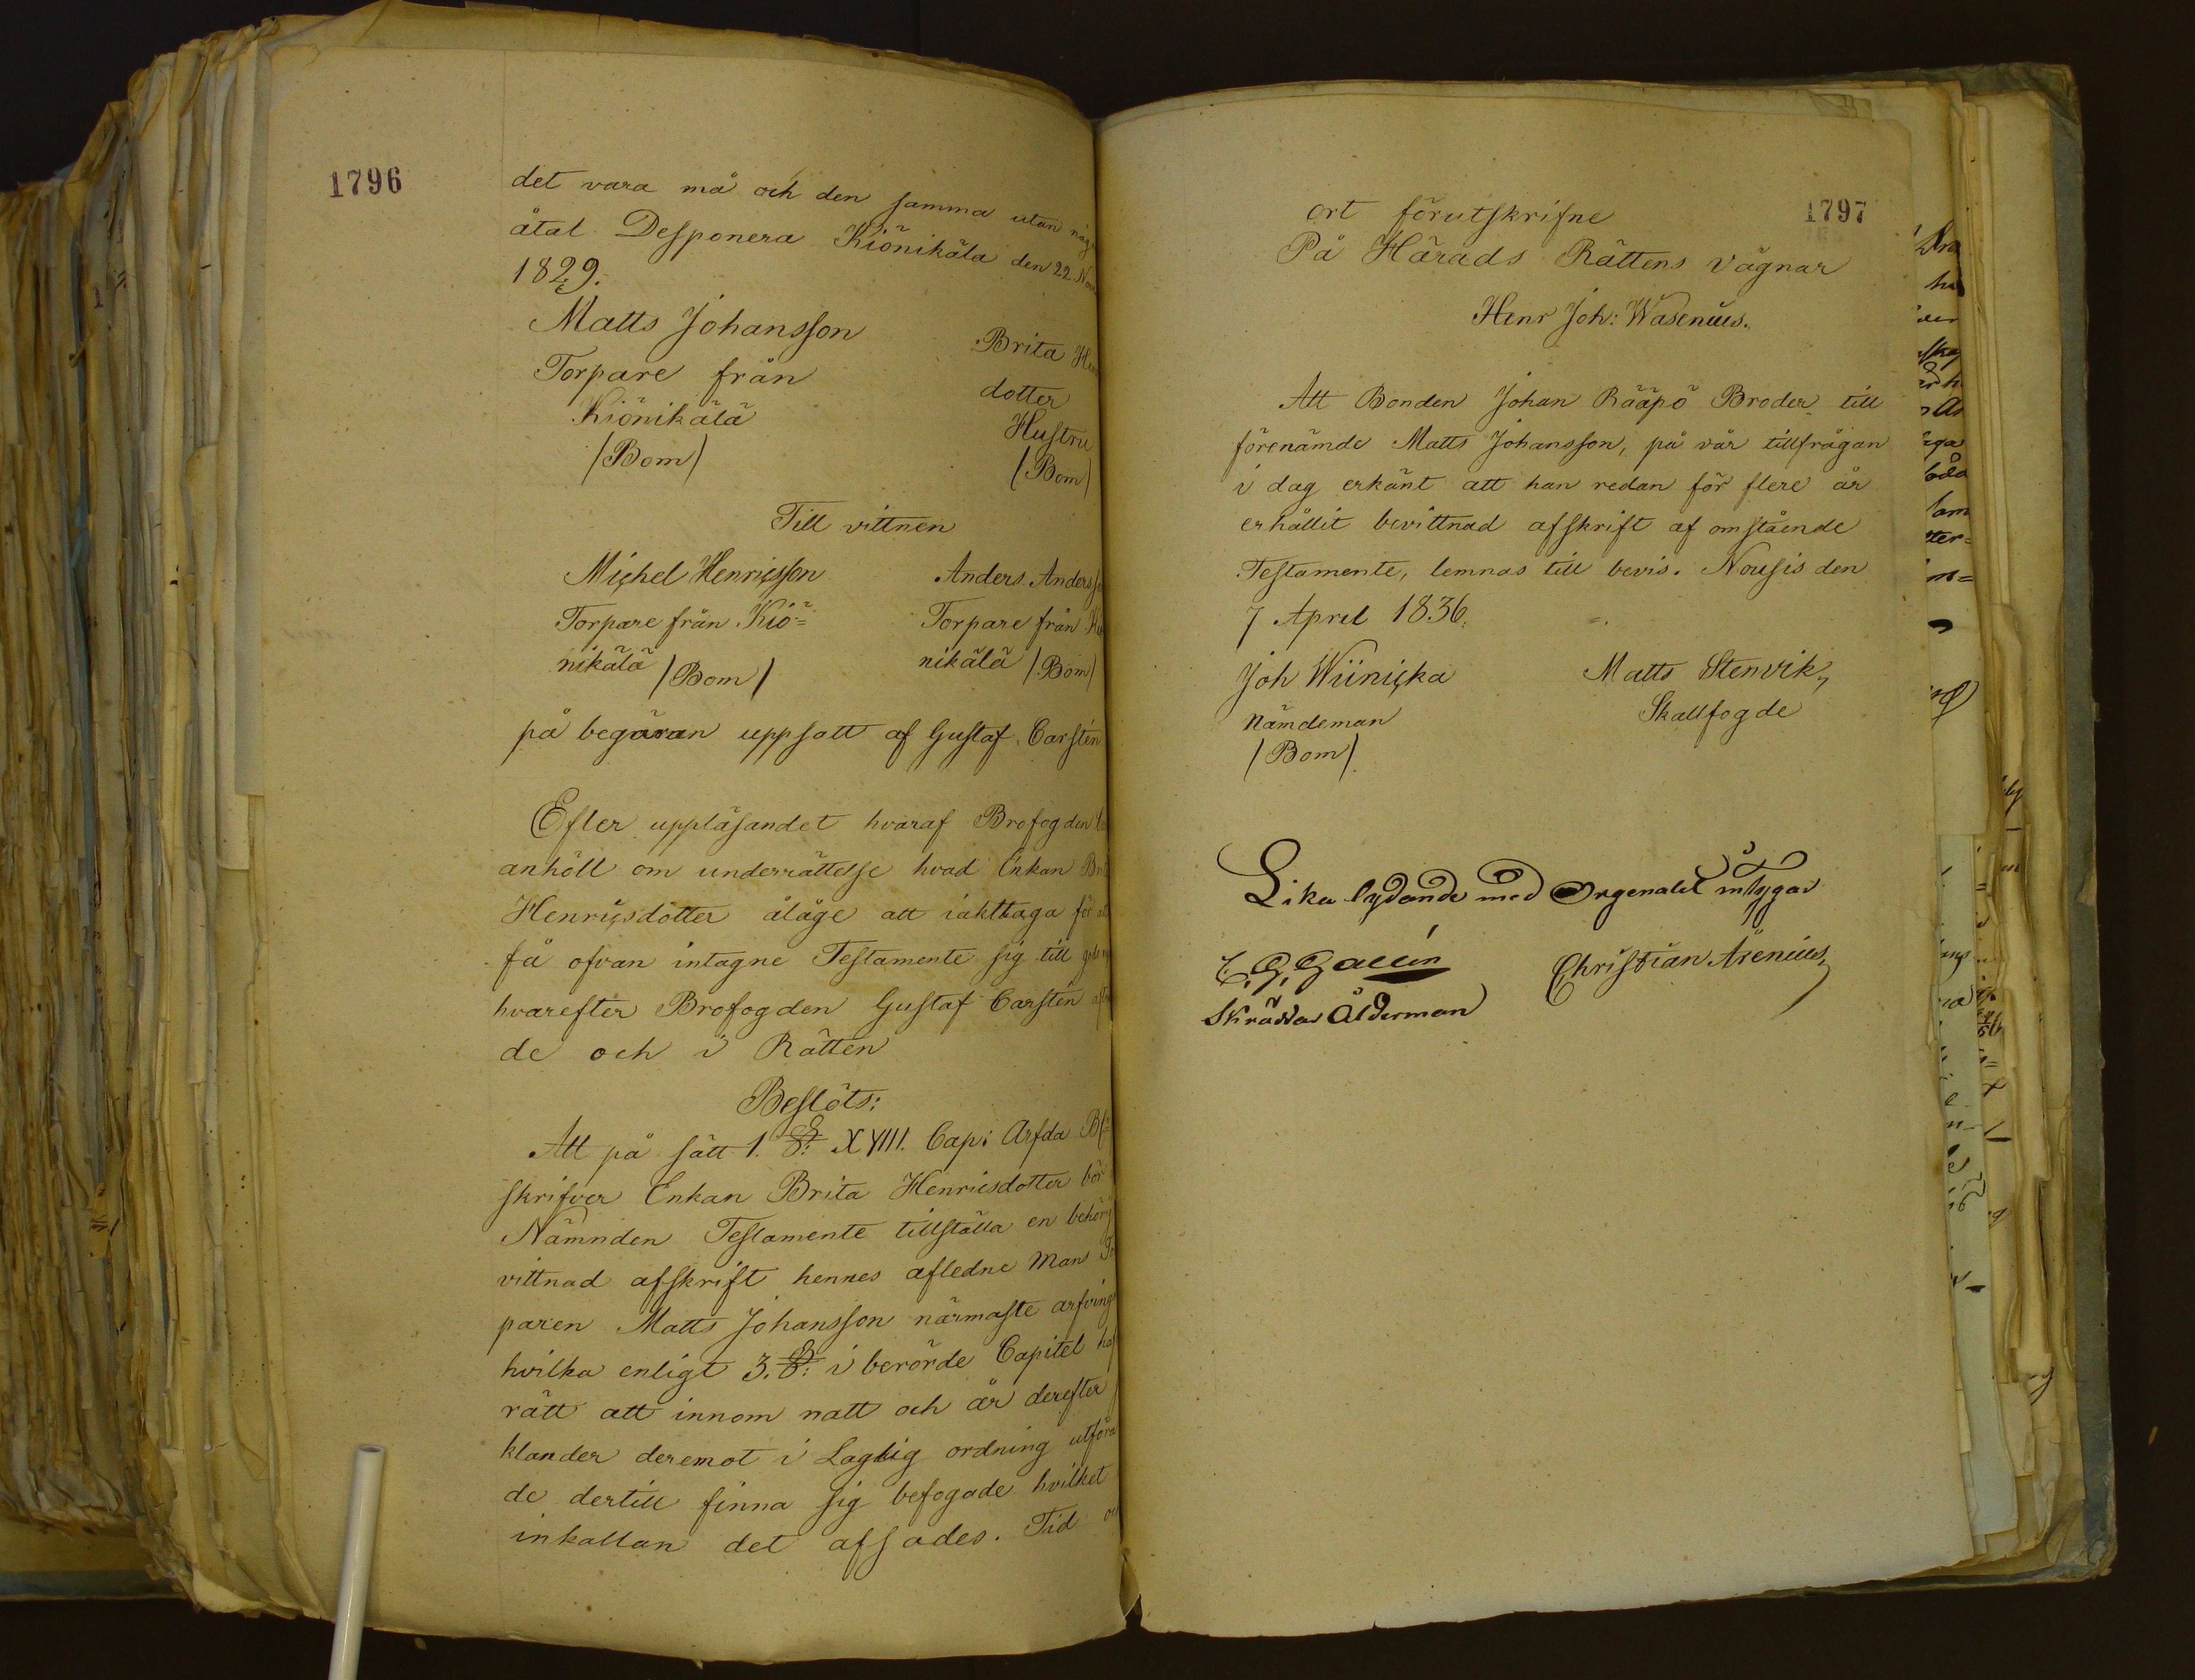 1796
det vara må och den samma utan
åtal Desponera Kiönikälä den 22
1829.
Matts Johansson
Brita
Torpare från
dotter
Kiönikälä
Hustru
/Bom/
/Bom/
Till vittnen
Michel Henricsson
Anders Anders
Torpare från Kiö=
Torpare från
nikälä /Bom/
nikälä /Bom/
på begäran uppsatt af Gustaf Carstén
Efter uppläsandet hvaraf Brofogden
anhöll om underrättelse hvad Enkan
Henricsdotter åläge att iakttaga för
få ofvan intagne Testamente sig till
hvarefter Brofogden Gustaf Carstén
de och i Rätten
Beslöts:
Att på sätt 1. §: XVIII. Cap: Ärfda
skrifver Enkan Brita Henricsdotter bör
Nämnden Testamente tillställa en behöri
vittnad afskrift hennes afledne Man
paren Matts Johansson närmaste arfving
hvilka enligt 3. §: i berörde Capitel
rätt att innom natt och år derefter
klander deremot i Laglig ordning utföra
de dertill finna sig befogade hvilket
inkallan det afsades. Tid
1797
ort förutskrifne
På Härads Rättens vägnar
Henr Joh: Wasenius.
Att Bonden Johan Rääpö Broder till
förenämde Matts Johansson, på vår tillfrågan
i dag erkänt att han redan för flere år
erhållit bevittnad afskrift af omstående
Testamente, lemnas till bevis. Nousis den
7 April 1836.
Joh Wiinicka
Matts Stenvik,
Nämdeman
Skallfogde
/Bom/.
Lika lydande med Orgenalet intygar
C. G. Gallén
Christian Arenius,
Skräddar Ålderman